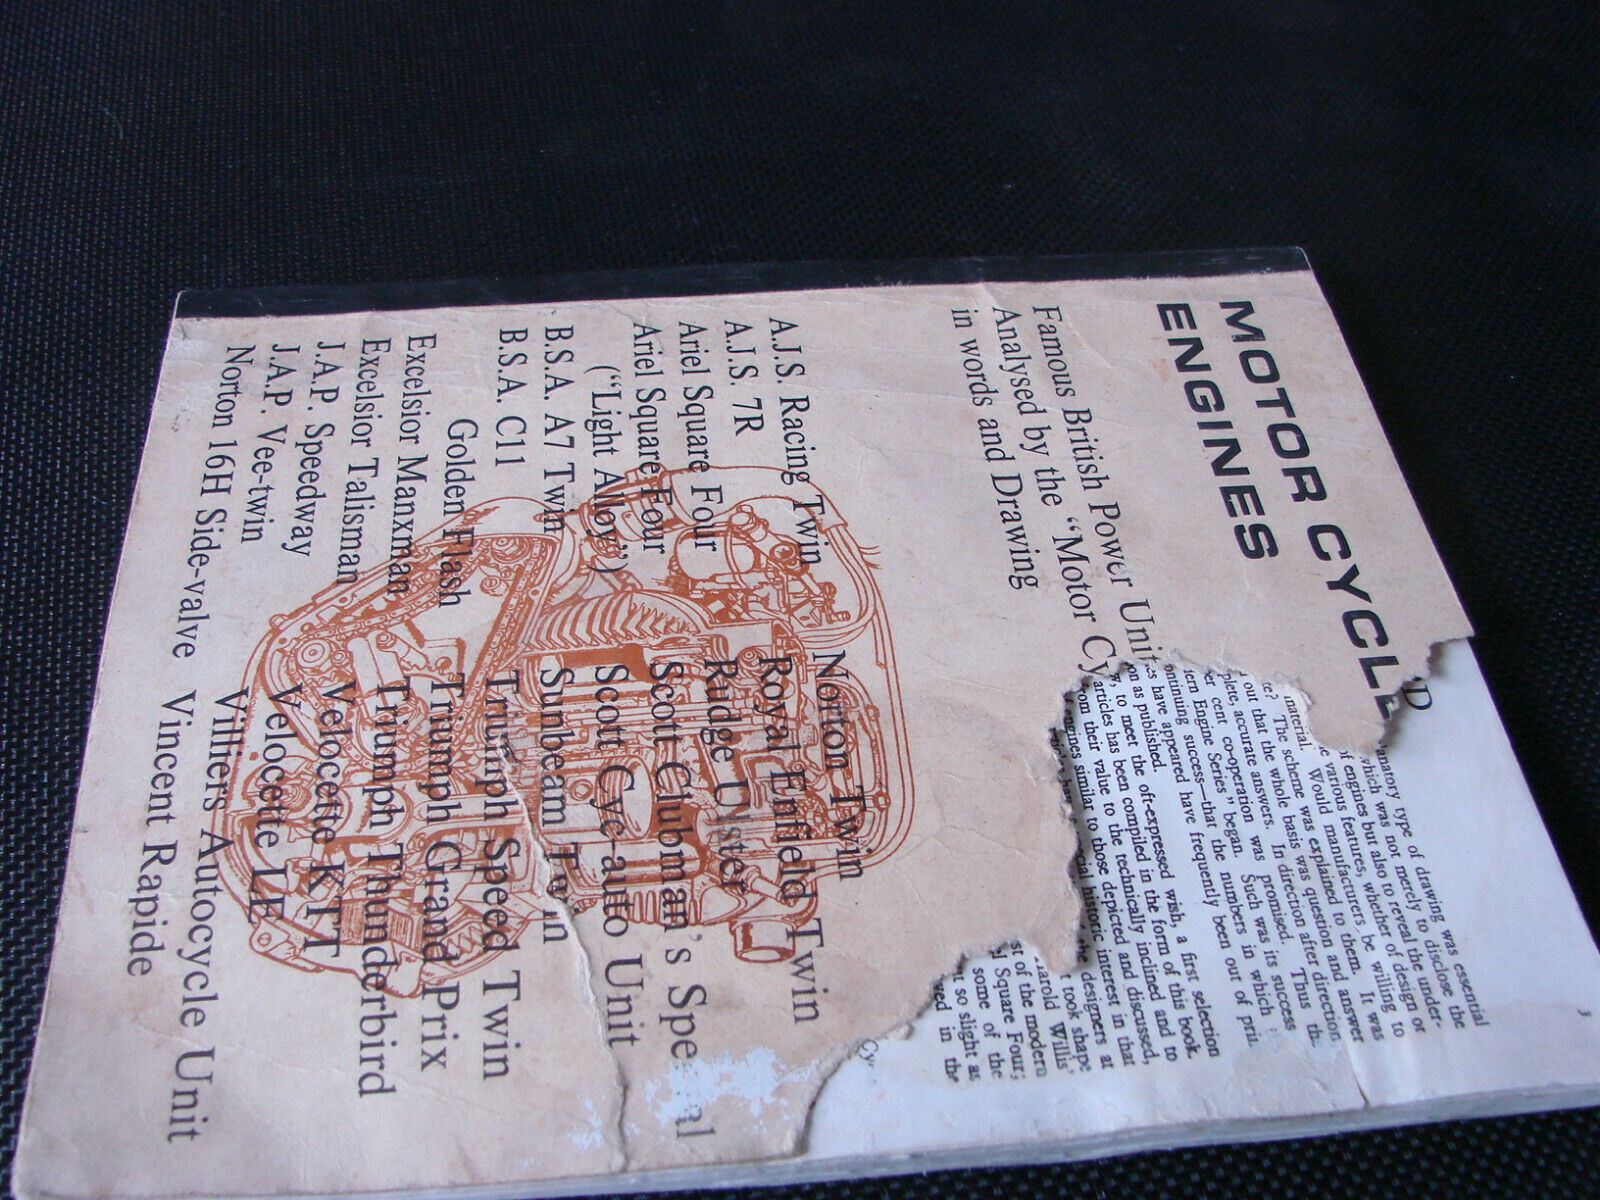 MOTOR CYCLE
ENGINES
Famous British Power Units
Analysed by the “Motor Cy
in words and Drawing
A.J.S. Racing Twin
A.J.S. 7R
Ariel Square Four
Ariel Square Four
(“Light Alloy”)
B.S.A. A7 Twin
B.S.A. C11
Golden Flash
Excelsior Manxman
Excelsior Talisman
J.A.P. Speedway
J.A.P. Vee-twin
Norton 16H Side-valve
Norton Twin
Royal Enfield Twin
Rudge Ulster
Scott Clubman’s Special
Scott Cyc-auto Unit
Sunbeam Twin
Triumph Speed Twin
Triumph Grand Prix
Triumph Thunderbird
Velocette KTT
Velocette LE
Villiers Autocycle Unit
Vincent Rapide
3
D
anatory type of drawing was essential
which was not merely to disclose the
of engines but also to reveal the under-
various features, whether of design or
material. Would manufacturers be willing to
? The scheme was explained to them. It was
out that the whole basis was question and answer
plete, accurate answers. In direction after direction
per cent co-operation was promised. Thus
ern Engine Series” began. Such was its success
ontinuing success—that the numbers in which
es have appeared have frequently been out of
on as published.
, to meet the oft-expressed wish, a first selection
articles has been compiled in the form of this book.
from their value to the technically inclined and to
engines similar to those depicted and discussed,
cial historic interest in that
the designers at
took shape
arold Willis’
st of the modern
l Square Four;
some of the
so slight as
in the